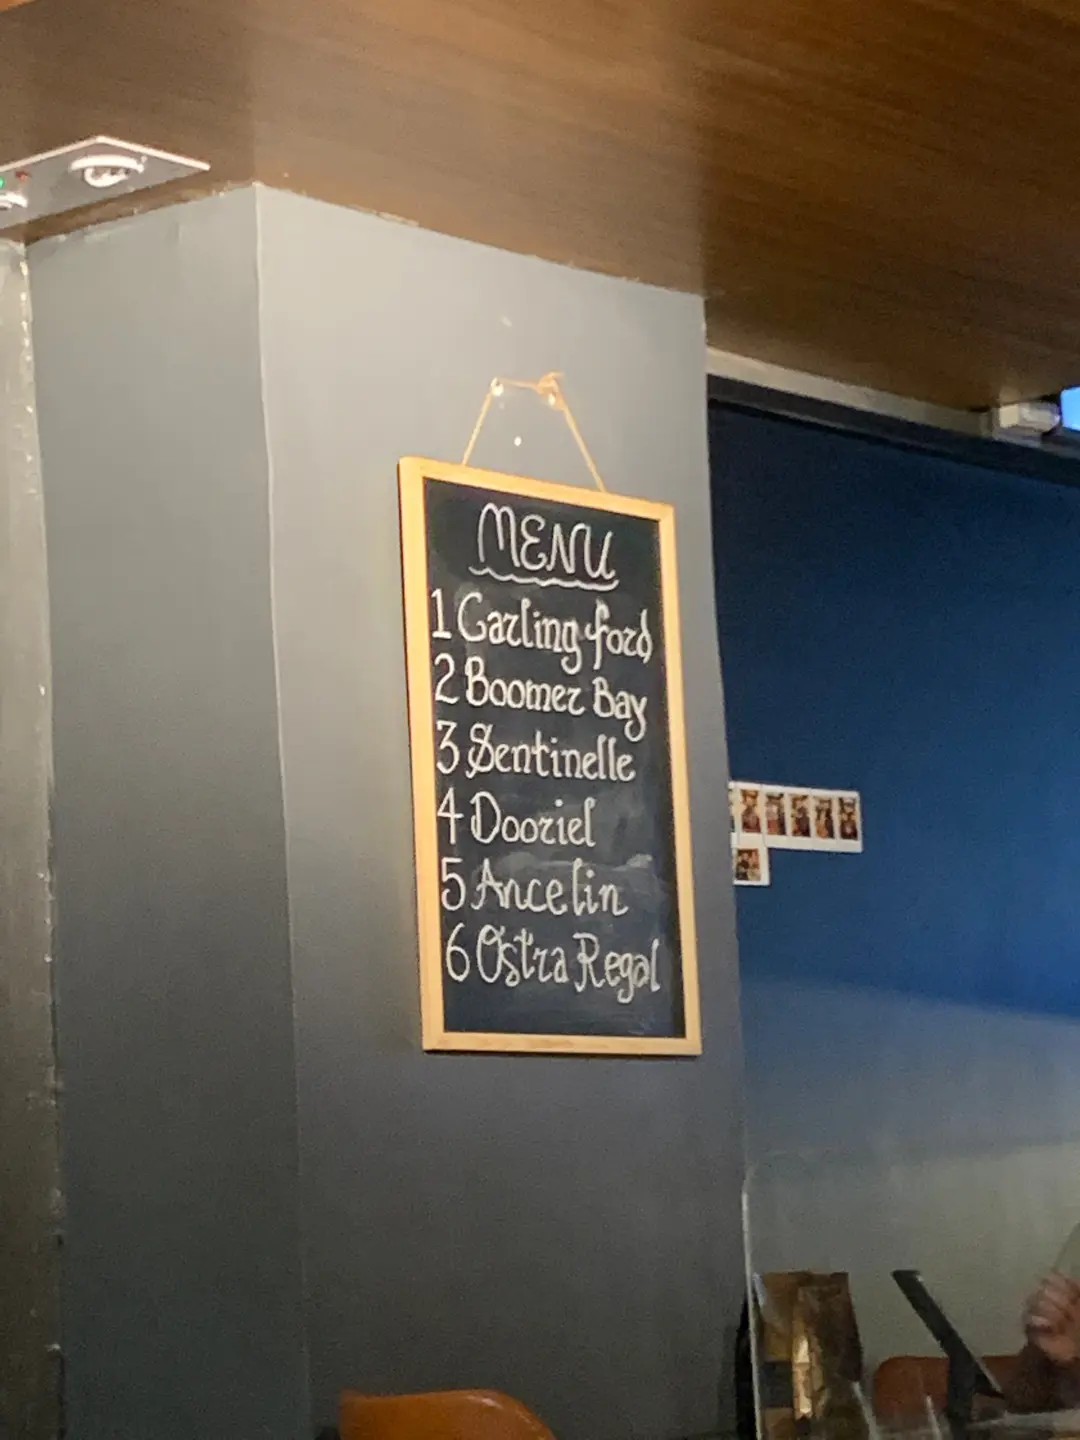 MENU
1 Carling ford
2 Boomer Bay
3 Sentinelle
4 Dooriel
5 Ancelin
6 Ostra Regal